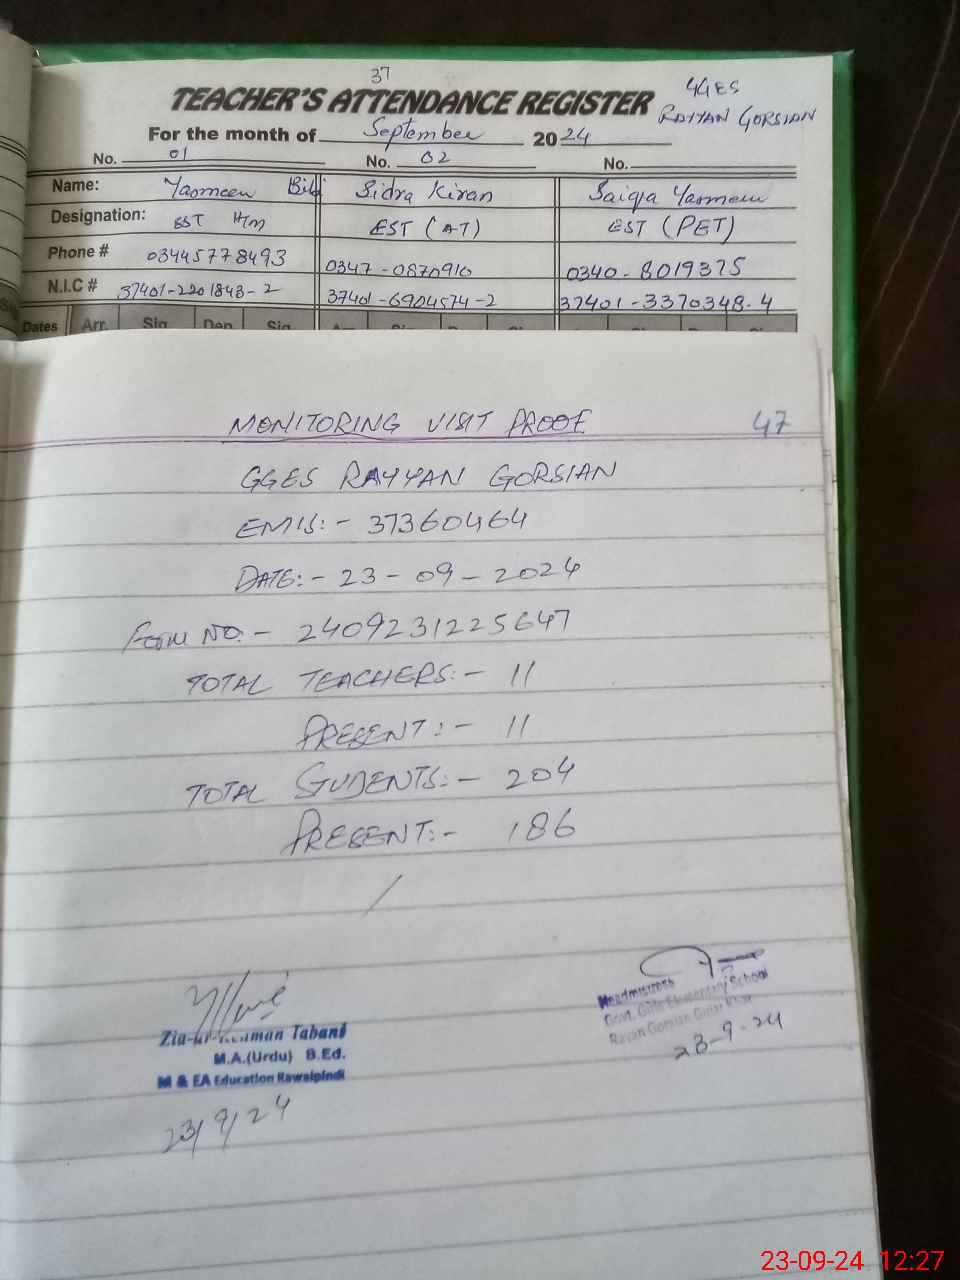 37
TEACHER'S ATTENDANCE REGISTER
GGES
RAYYAN GORSIAN
For the month of September 2024
No. 01 No. 02 No.
Name: Yasmeen Bibi Sidra Kiran Saiqa Yasmeen
Designation: SST HM EST (AT) EST (PET)
Phone # 03445778493 0347-0870910 0340-8019375
N.I.C # 37401-2201843-2 37401-6904574-2 37401-3370348-4
Dates Arr. Sig Dep Sig
MONITORING VISIT PROOF 47
GGES RAYYAN GORSIAN
EMIS:- 37360464
DATE:- 23-09-2024
Form NO.- 2409231225647
TOTAL TEACHERS:- 11
PRESENT:- 11
TOTAL STUDENTS:- 204
PRESENT:- 186
Zia-ur-Rehman Tabani
M.A.(Urdu) B.Ed.
M & EA Education Rawalpindi
23/9/24
Headmistress
Govt. Girls Elementary School
Rayan Gorsian
23-9-24
23-09-24 12:27